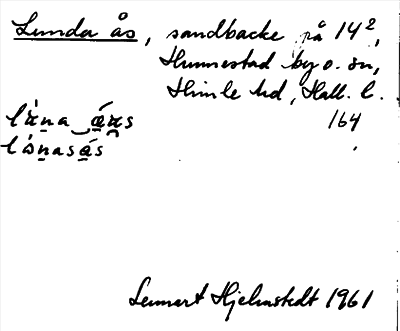 Lunda ås, sandbacke på 14²,
Hunnestad by o. sn,
Himle hd, Hall. l.
164
Lennart Hjelmstedt 1961